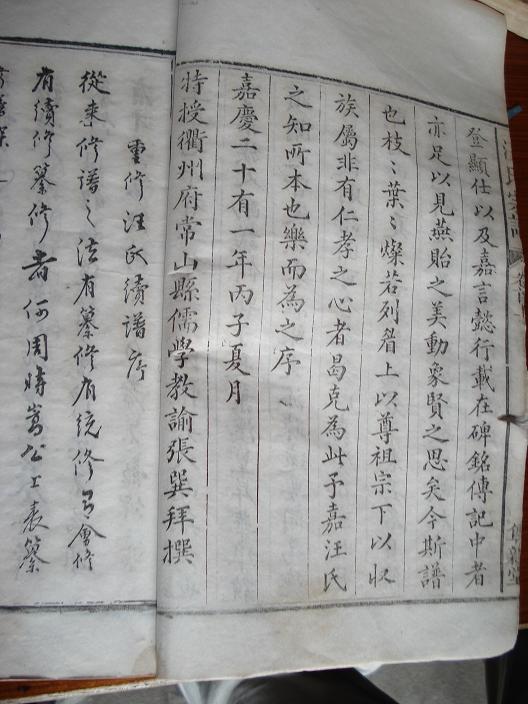 登顯仕以及嘉言懿行載在碑銘傳記中者
亦足以見燕貽之美動象賢之思矣今斯譜
也枝〻葉〻燦若列眉上以尊祖宗下以收
族屬非有仁孝之心者曷克為此予嘉汪氏
之知所本也樂而為之序
嘉慶二十有一年丙子夏月
特授衢州府常山縣儒學教諭張巽拜撰
重修汪氏續譜序
從来修譜之法有纂修有統修有會修
有續修纂修者何周時公上表纂